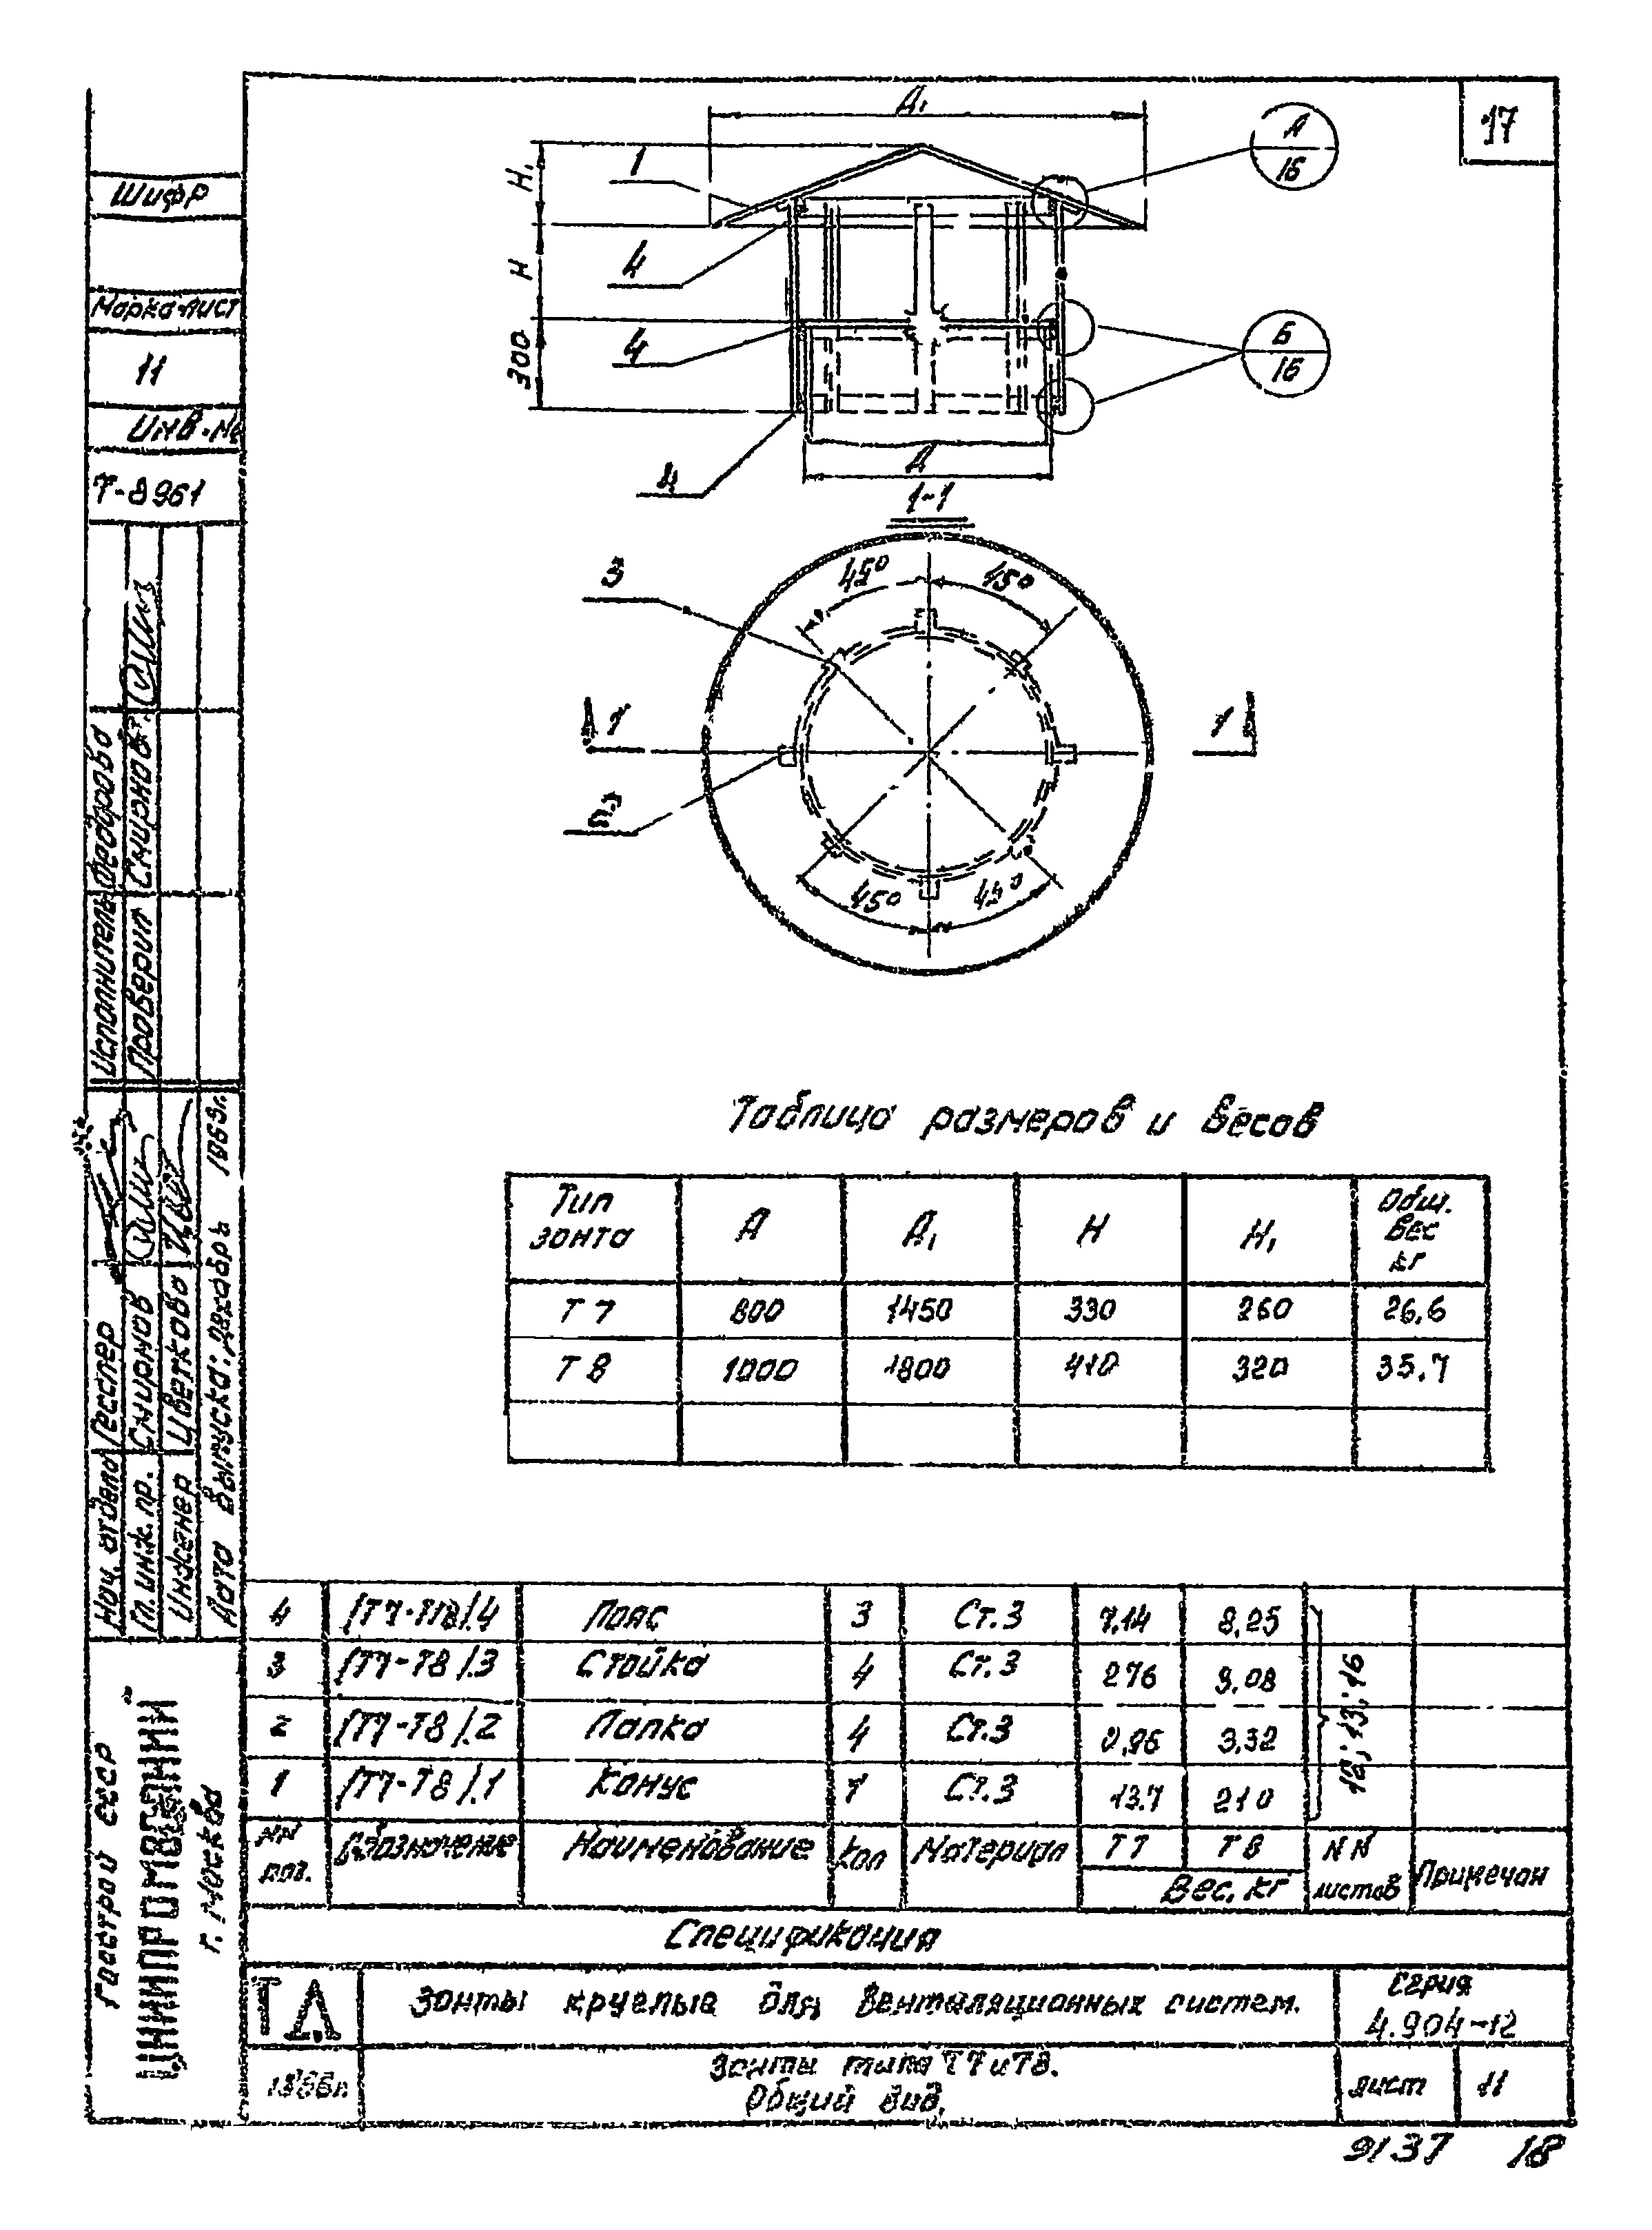 17
Д₁
А
16
H₁
1
H
4
Б
16
300
4
4
Д
1-1
3
45°
45°
1
1
2
45°
45°
Таблица размеров и весов
Тип зонта | Д | Д₁ | H | H₁ | Общ. вес кг
Т 7 | 800 | 1450 | 330 | 260 | 26.6
Т 8 | 1000 | 1800 | 410 | 320 | 35.7
4 | /Т7-Т8/.4 | Пояс | 3 | Ст.3 | 7,14 | 8,25
3 | /Т7-Т8/.3 | Стойка | 4 | Ст.3 | 2 76 | 3,08
2 | /Т7-Т8/.2 | Лапка | 4 | Ст.3 | 3,32
1 | /Т7-Т8/.1 | Конус | 1 | Ст.3 | 13.7 | 21 0
12; 13; 16
NN поз. | Обозначение | Наименование | Кол | Материал | Т 7 | Т 8 | Вес, кг | NN листов | Примечан
Спецификация
ТД
Зонты круглые для вентиляционных систем.
Серия
4.904-12
Зонты типа Т7 и Т8.
Общий вид.
лист
11
9137
18
Шифр
Марка-лист
11
Инв.-№
Т-8961
Исполнитель
Проверил
Смирнов
Нач. отдела
Гесслер
Гл. инж. пр.
Смирнов
Инженер
Цветкова
Дата выпуска: декабрь 196
Госстрой СССР
ЦНИИПРОМЗДАНИЙ
г. Москва